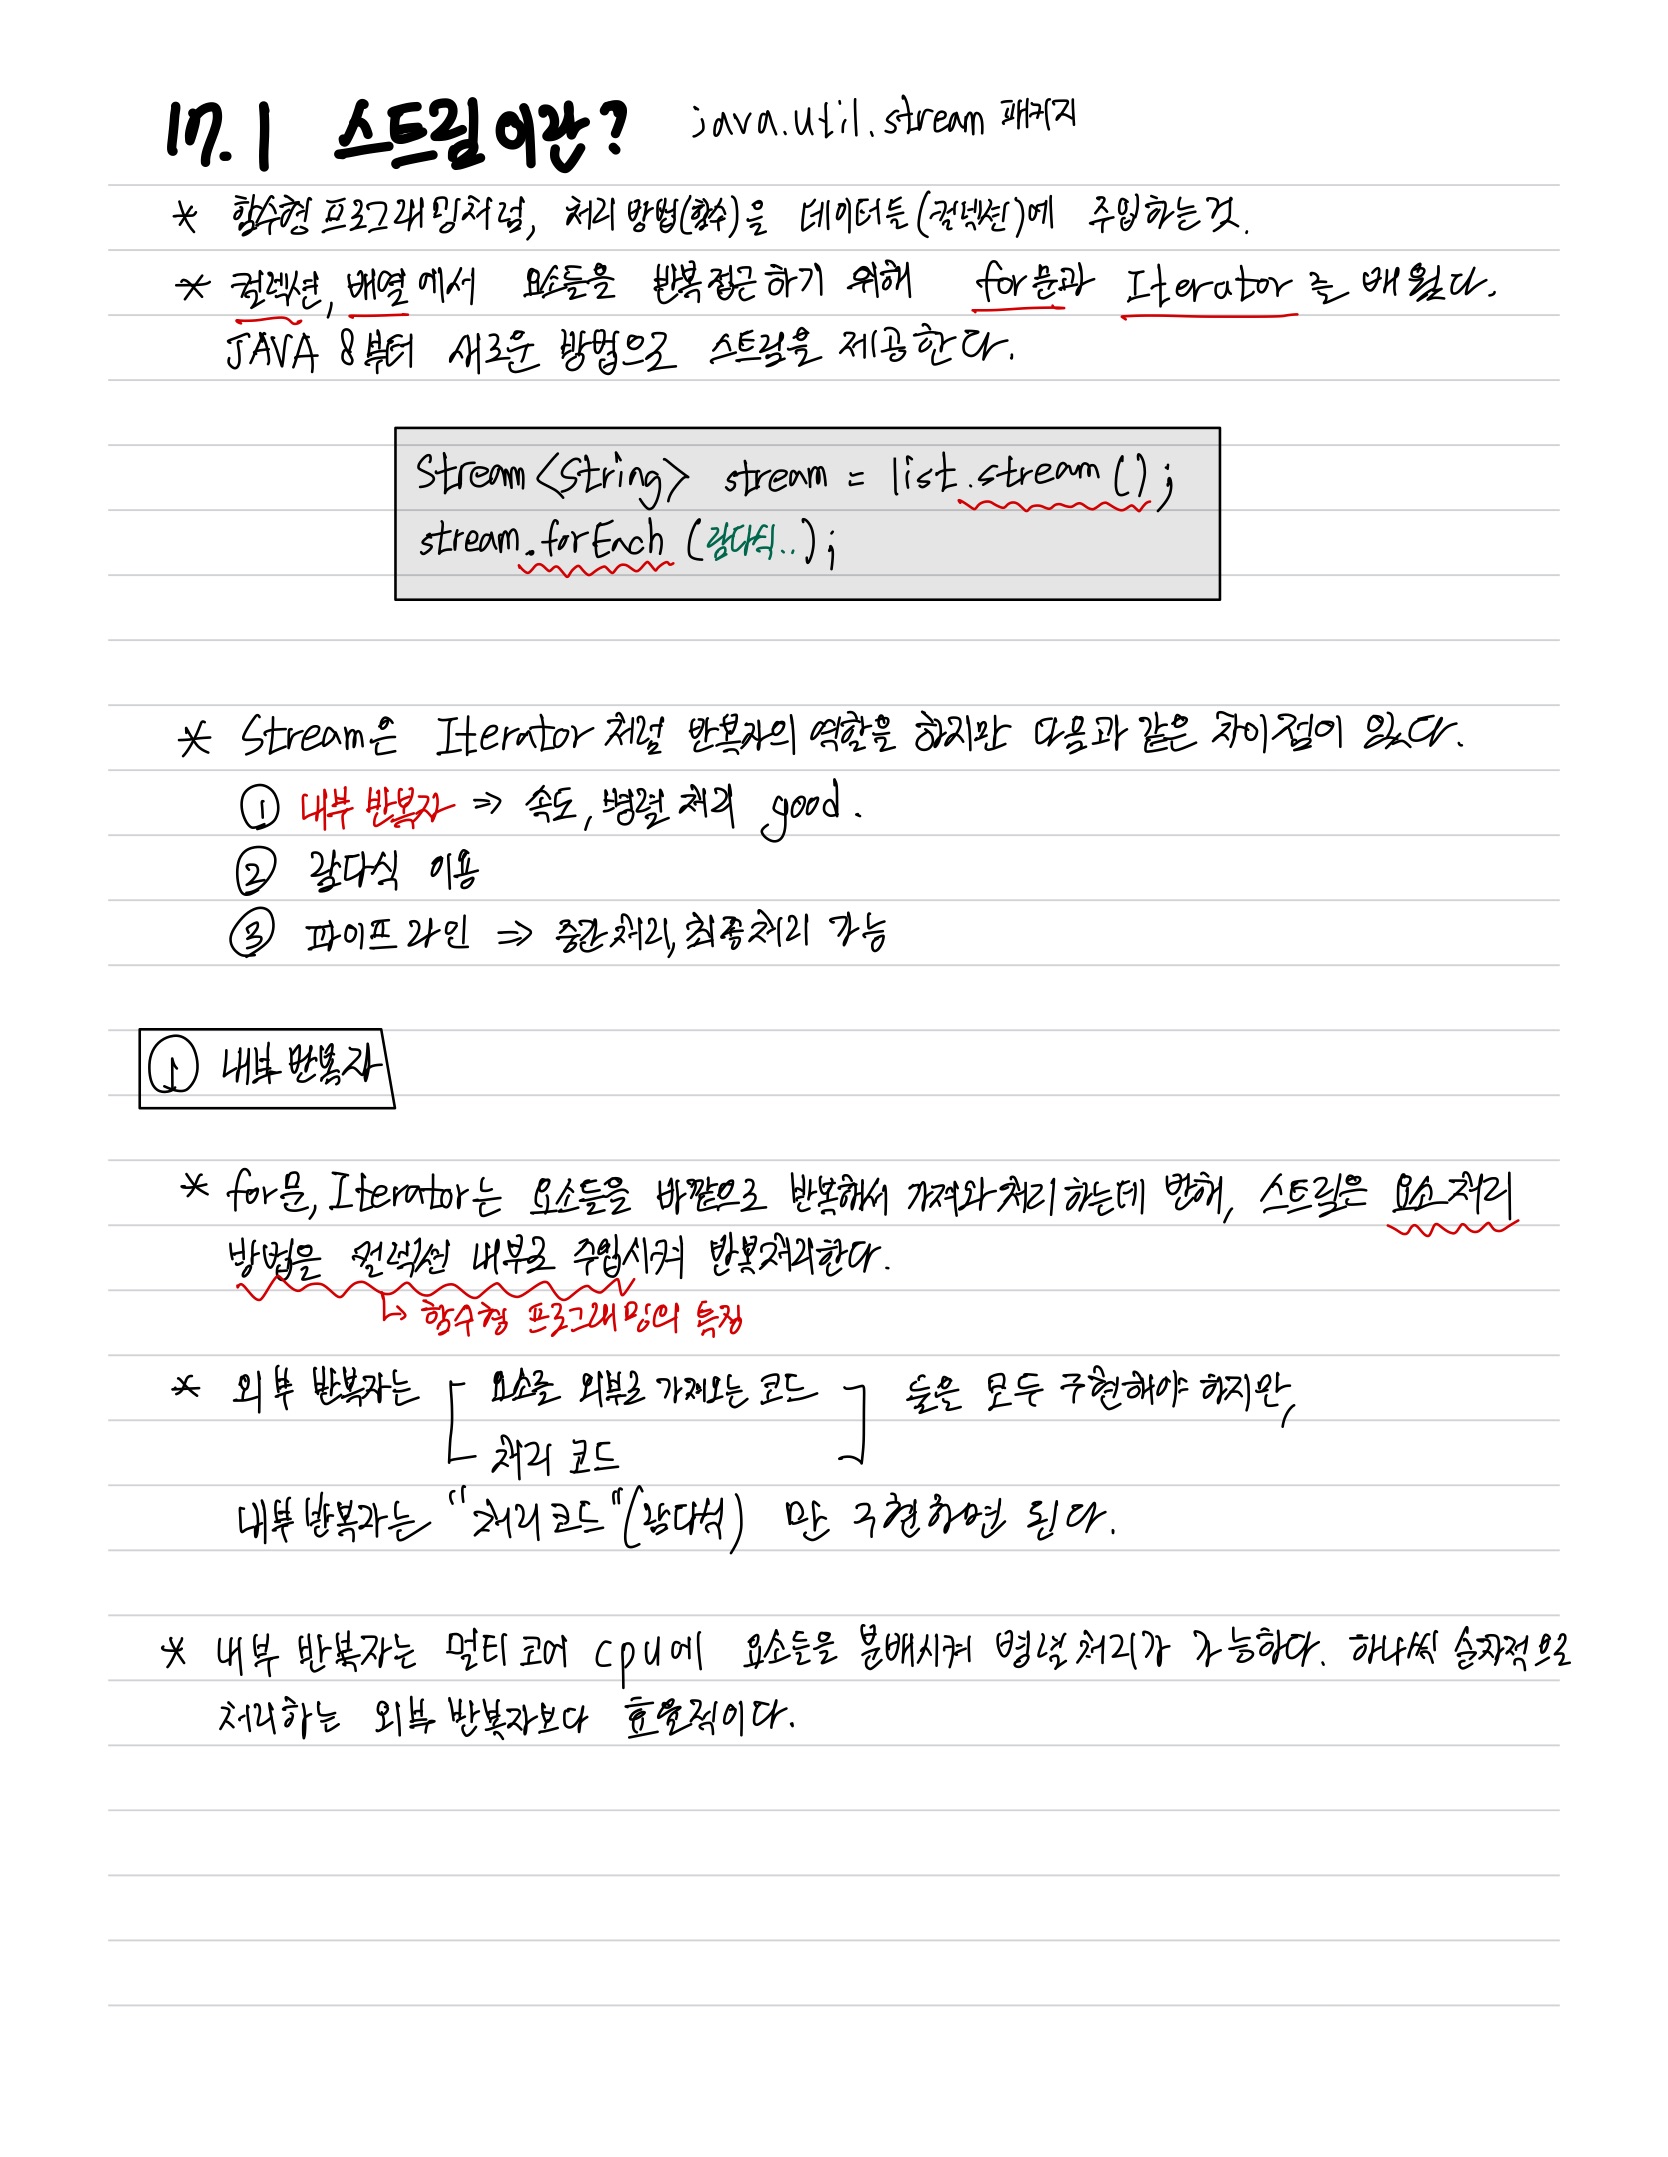 17.1 스트림이란? java.util.stream 패키지
* 함수형 프로그래밍처럼, 처리 방법(함수)을 데이터들(컬렉션)에 주입하는것.
* 컬렉션, 배열에서 요소들을 반복접근하기 위해 for문과 Iterator를 배웠다.
JAVA 8부터 새로운 방법으로 스트림을 제공한다.
Stream<String> stream = list.stream();
stream.forEach(람다식..);
* Stream은 Iterator처럼 반복자의 역할을 하지만 다음과 같은 차이점이 있다.
① 내부 반복자 => 속도, 병렬 처리 good.
② 람다식 이용
③ 파이프라인 => 중간처리, 최종처리 가능
① 내부 반복자
* for문, Iterator는 요소들을 바깥으로 반복해서 가져와 처리하는데 반해, 스트림은 요소처리
방법을 컬렉션 내부로 주입시켜 반복처리한다.
↳ 함수형 프로그래밍의 특징
* 외부 반복자는 [ 요소를 외부로 가져오는 코드 ] 들은 모두 구현해야 하지만,
처리 코드
내부 반복자는 "처리코드"(람다식) 만 구현하면 된다.
* 내부 반복자는 멀티코어 cpu에 요소들을 분배시켜 병렬처리가 가능하다. 하나씩 순차적으로
처리하는 외부 반복자보다 효율적이다.